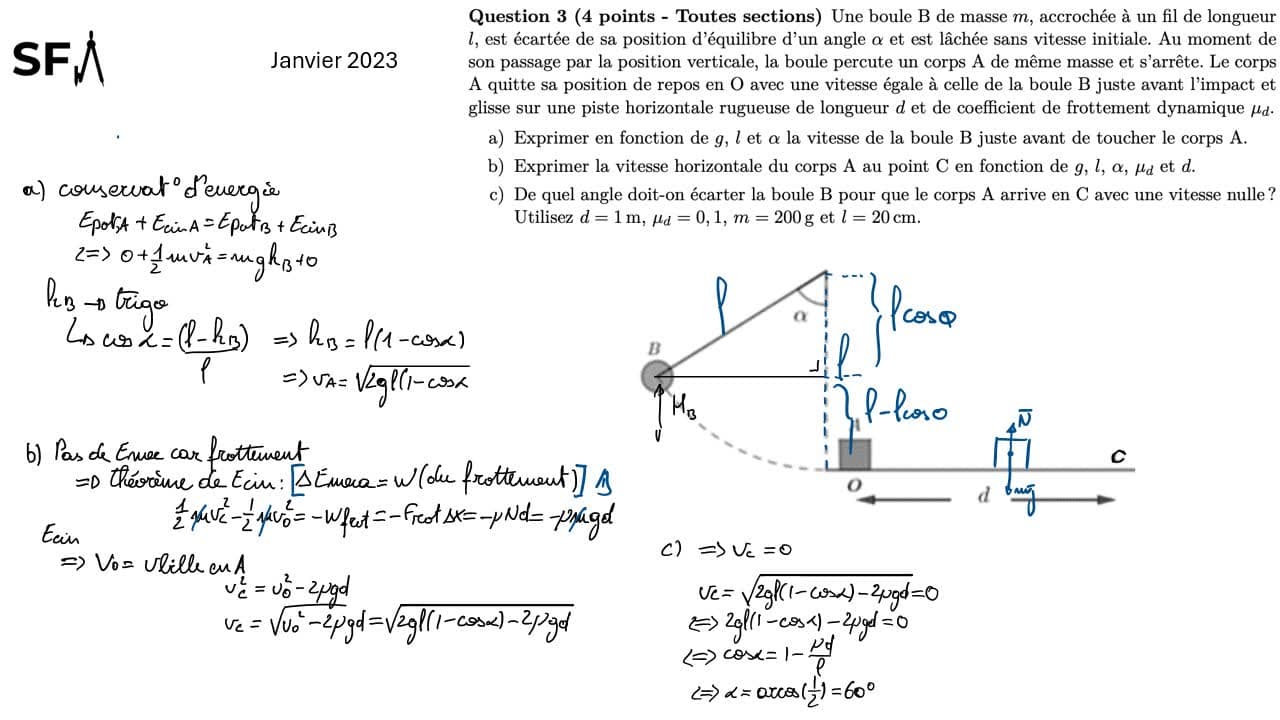 SFA
Janvier 2023
Question 3 (4 points - Toutes sections) Une boule B de masse m, accrochée à un fil de longueur
l, est écartée de sa position d'équilibre d'un angle α et est lâchée sans vitesse initiale. Au moment de
son passage par la position verticale, la boule percute un corps A de même masse et s'arrête. Le corps
A quitte sa position de repos en O avec une vitesse égale à celle de la boule B juste avant l'impact et
glisse sur une piste horizontale rugueuse de longueur d et de coefficient de frottement dynamique μd.
a) Exprimer en fonction de g, l et α la vitesse de la boule B juste avant de toucher le corps A.
b) Exprimer la vitesse horizontale du corps A au point C en fonction de g, l, α, μd et d.
c) De quel angle doit-on écarter la boule B pour que le corps A arrive en C avec une vitesse nulle ?
Utilisez d = 1 m, μd = 0,1, m = 200 g et l = 20 cm.
a) conservat° d'energie
Epot,A + Ecin A = Epot B + Ecin B
<=> 0 + 1/2 mv²A = mghB + 0
hB → trigo
↳ cos α = (l - hB)/l => hB = l(1 - cosα)
=> vA = √2gl(1 - cosα
b) Pas de Emec car frottement
=> théorème de Ecin : [ΔEmeca = W(du frottement)]
1/2 mvc² - 1/2 mv0² = -Wfrot = -Frot Δx = -μNd = -μmgd
Ecin
=> V0 = v bille en A
vc² = v0² - 2μgd
vc = √v0² - 2μgd = √2gl(1 - cosα) - 2μgd
l
α
l cosθ
B
l
HB
l - l cosθ
A
N
C
O
d
mg
c) => vc = 0
vc = √2gl(1 - cosα) - 2μgd = 0
<=> 2gl(1 - cosα) - 2μgd = 0
<=> cosα = 1 - μd/l
<=> α = arcos(1/2) = 60°